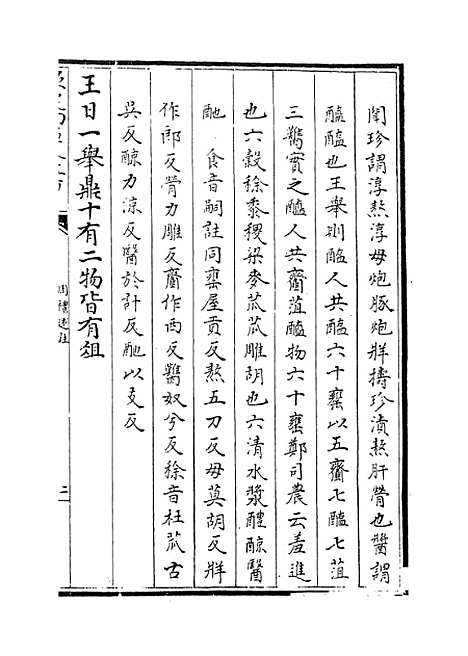 閏珍謂淳熬淳母炮豚炮牂擣珍漬熬肝膋也醬謂
醯醢也王舉則醢人共醢六十罋以五齏七醢七菹
三臡實之醢人共齏菹醢物六十罋鄭司農云羞進
也六穀稌黍稷粱麥苽苽雕胡也六清水漿醴醇醫
酏 食音嗣註同罋屋貢反熬五刀反母莫胡反牂
作郎反膋力雕反齏作西反臡奴兮反稌音杜苽古
吳反醇力涼反醫於計反酏以支反
王日一舉鼎十有二物皆有俎
周禮述註
二